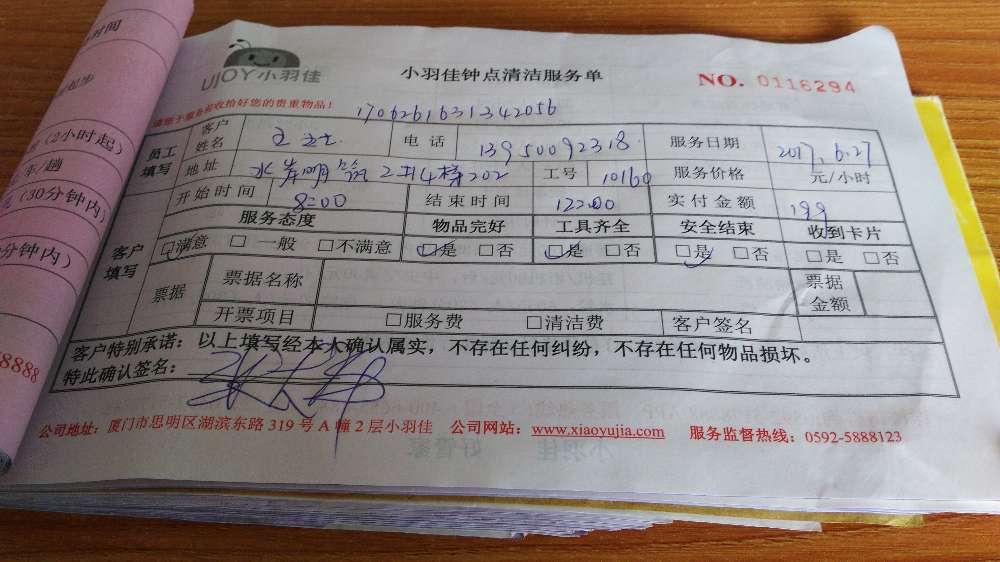 时间
起步
(2小时起)
车/趟
(30分钟内)
分钟内)
8888
UJOY小羽佳
小羽佳钟点清洁服务单
NO. 0116294
请您于服务前收拾好您的贵重物品!
1706261631342056
员工填写 客户姓名 王女士 电话 13950092318 服务日期 2017.6.27
地址 水岸明筑2#4梯202 工号 10160 服务价格 元/小时
开始时间 8:00 结束时间 12:00 实付金额 199
客户填写 服务态度 物品完好 工具齐全 安全结束 收到卡片
□满意 □一般 □不满意 □是 □否 □是 □否 □是 □否 □是 □否
票据 票据名称 票据金额
开票项目 □服务费 □清洁费 客户签名
客户特别承诺:以上填写经本人确认属实,不存在任何纠纷,不存在任何物品损坏。
特此确认签名:
公司地址:厦门市思明区湖滨东路319号A幢2层小羽佳 公司网站:www.xiaoyujia.com 服务监督热线:0592-5888123